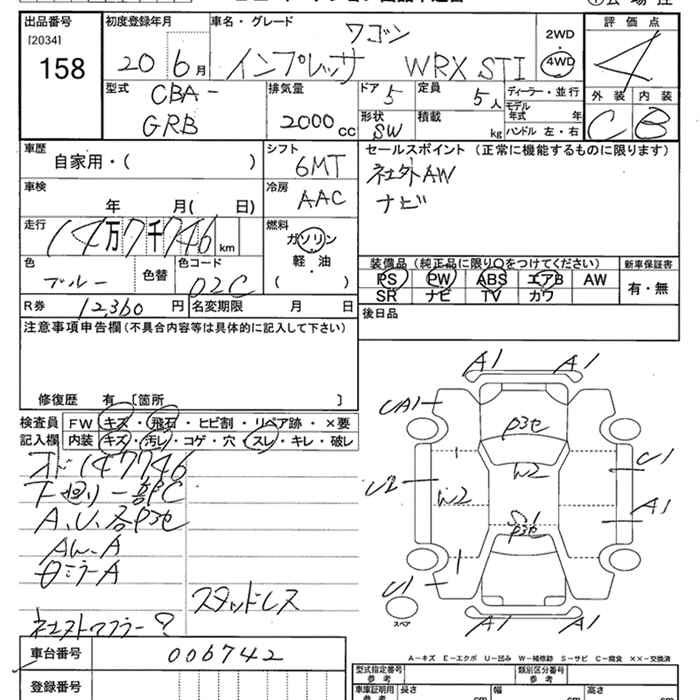 出品番号 初度登録年月 車名・グレード 評価点
[2034] 158 20 6月 ワゴン
インプレッサ WRX STI 2WD 4WD 4
型式 排気量 ドア 定員 ディーラー・並行 外装 内装
CBA- 5 5人 モデル年式 年 C B
GRB 2000cc 形状 SW 積載 kg ハンドル 左・右
車歴 シフト セールスポイント (正常に機能するものに限ります)
自家用・( ) 6MT 社外AW
車検 冷房 ナビ
年 月( 日) AAC
走行 燃料
14万7千746km ガソリン
軽・油
( )
色 色替 色コード 装備品 (純正品に限り○をつけてください) 新車保証書
ブルー 02C PS PW ABS エアB AW 有・無
SR ナビ TV カワ
R券 12,360円 名変期限 月 日 後日品
注意事項申告欄 (不具合内容等は具体的に記入して下さい)
修復歴 有 [箇所 ]
検査員 FW キズ・飛石・ヒビ割・リペア跡・×要
記入欄 内装 キズ・汚レ・コゲ・穴・スレ・キレ・破レ
147746
下廻り一部C
AW.A
スタッドレス
A1 A1
UA1
P3セ
U2 W2 W2 U1
A1
P3セ
U1
スペア A1 A1
A-キズ E-エクボ U-凹み W-補修跡 S-サビ C-腐食 ××-交換済
車台番号 006742
登録番号
型式指定番号 参考 類別区分番号 参考
車庫証明用 参考 長さ cm 幅 cm 高さ cm